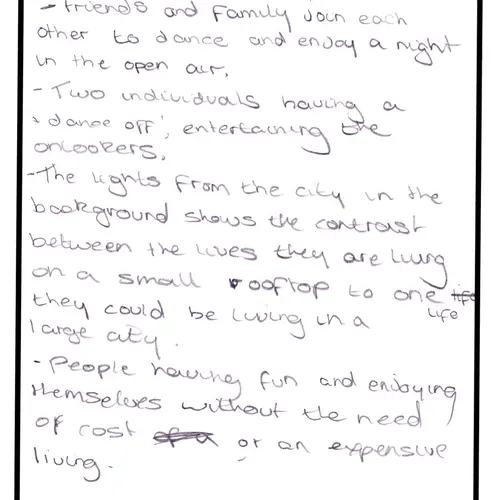 - friends and family join each
other to dance and enjoy a night
in the open air.
- Two individuals having a
'dance off', entertaining the
onlookers.
- The lights from the city in the
background shows the contrast
between the lives they are living
on a small rooftop to one life
they could be living in a life
large city.
- People having fun and enjoying
themselves without the need
of cost of a or an expensive
living.